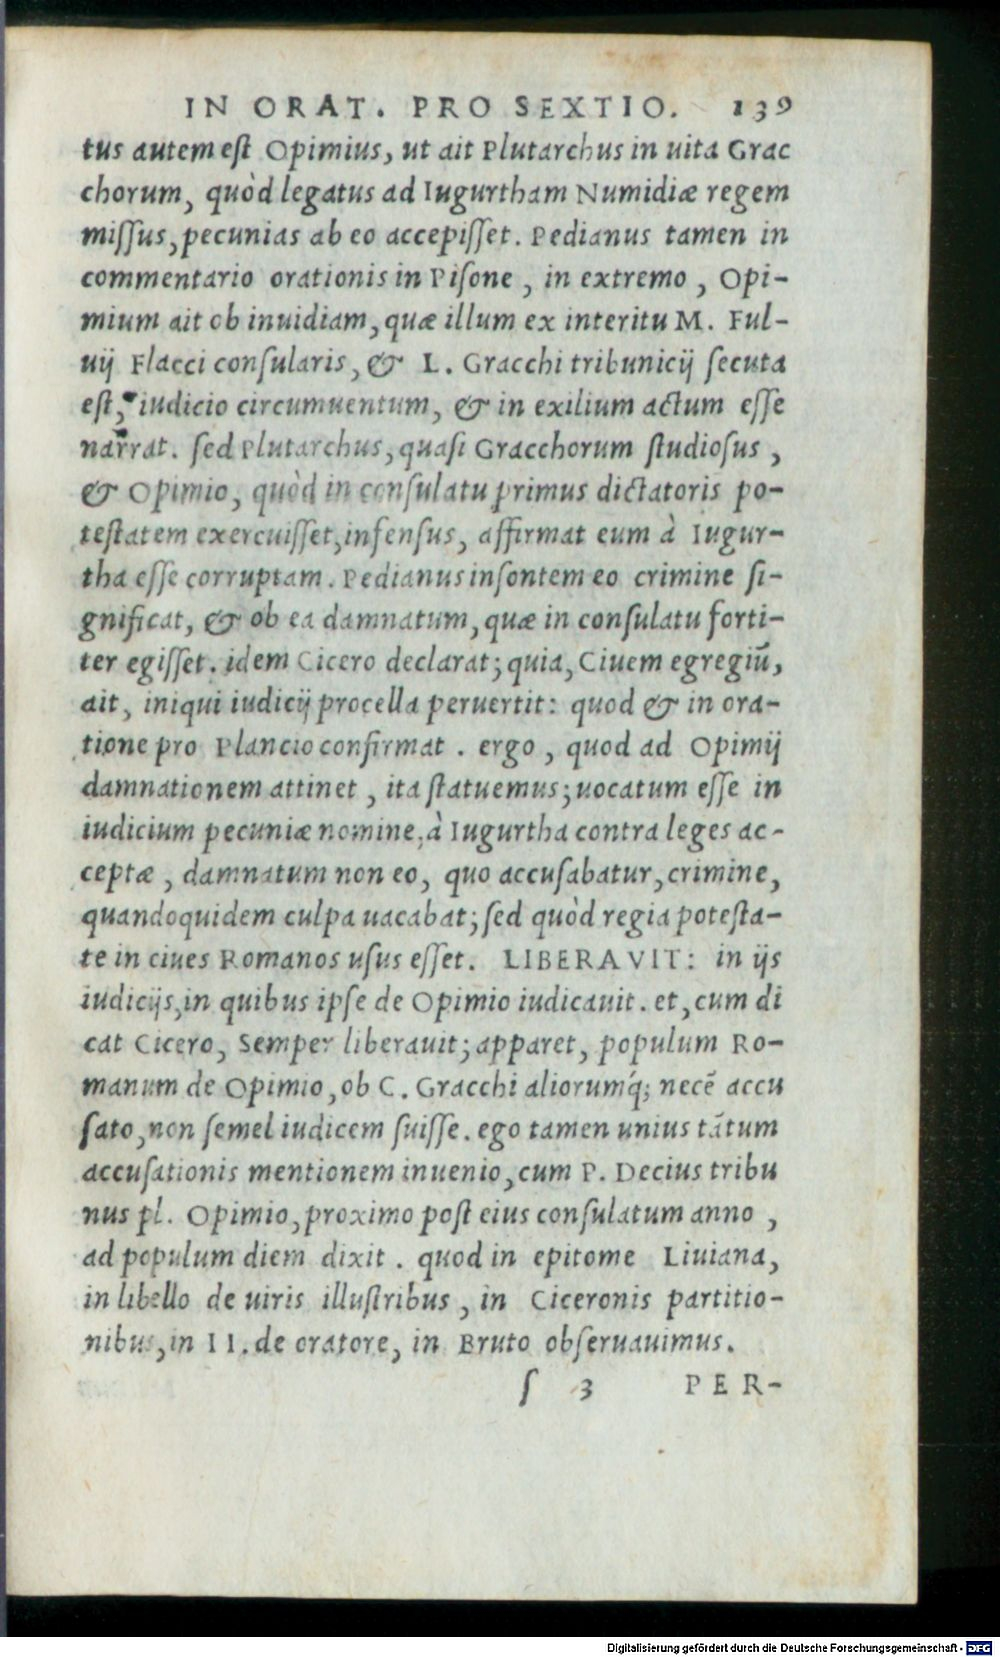 IN ORAT. PRO SEXTIO. 139
tus autem est Opimius, ut ait Plutarchus in uita Grac
chorum, quòd legatus ad Iugurtham Numidiæ regem
missus, pecunias ab eo accepisset. Pedianus tamen in
commentario orationis in Pisone, in extremo, Opi-
mium ait ob inuidiam, quæ illum ex interitu M. Ful-
uij Flacci consularis, & L. Gracchi tribunicij secuta
est, iudicio circumuentum, & in exilium actum esse
narrat. sed Plutarchus, quasi Gracchorum studiosus,
& Opimio, quòd in consulatu primus dictatoris po-
testatem exercuisset, infensus, affirmat eum à Iugur-
tha esse corruptam. Pedianus insontem eo crimine si-
gnificat, & ob ea damnatum, quæ in consulatu forti-
ter egisset. idem Cicero declarat; quia, Ciuem egregiū,
ait, iniqui iudicij procella peruertit: quod & in ora-
tione pro Plancio confirmat. ergo, quod ad Opimij
damnationem attinet, ita statuemus; uocatum esse in
iudicium pecuniæ nomine, à Iugurtha contra leges ac-
ceptæ, damnatum non eo, quo accusabatur, crimine,
quandoquidem culpa uacabat; sed quòd regia potesta-
te in ciues Romanos usus esset. LIBERAVIT: in ijs
iudicijs, in quibus ipse de Opimio iudicauit. et, cum di
cat Cicero, Semper liberauit; apparet, populum Ro-
manum de Opimio, ob C. Gracchi aliorumq́; necē accu
sato, non semel iudicem fuisse. ego tamen unius tātum
accusationis mentionem inuenio, cum P. Decius tribu
nus pl. Opimio, proximo post eius consulatum anno,
ad populum diem dixit. quod in epitome Liuiana,
in libello de uiris illustribus, in Ciceronis partitio-
nibus, in II. de oratore, in Bruto obseruauimus.
ſ 3 PER-
Digitalisierung gefördert durch die Deutsche Forschungsgemeinschaft - DFG